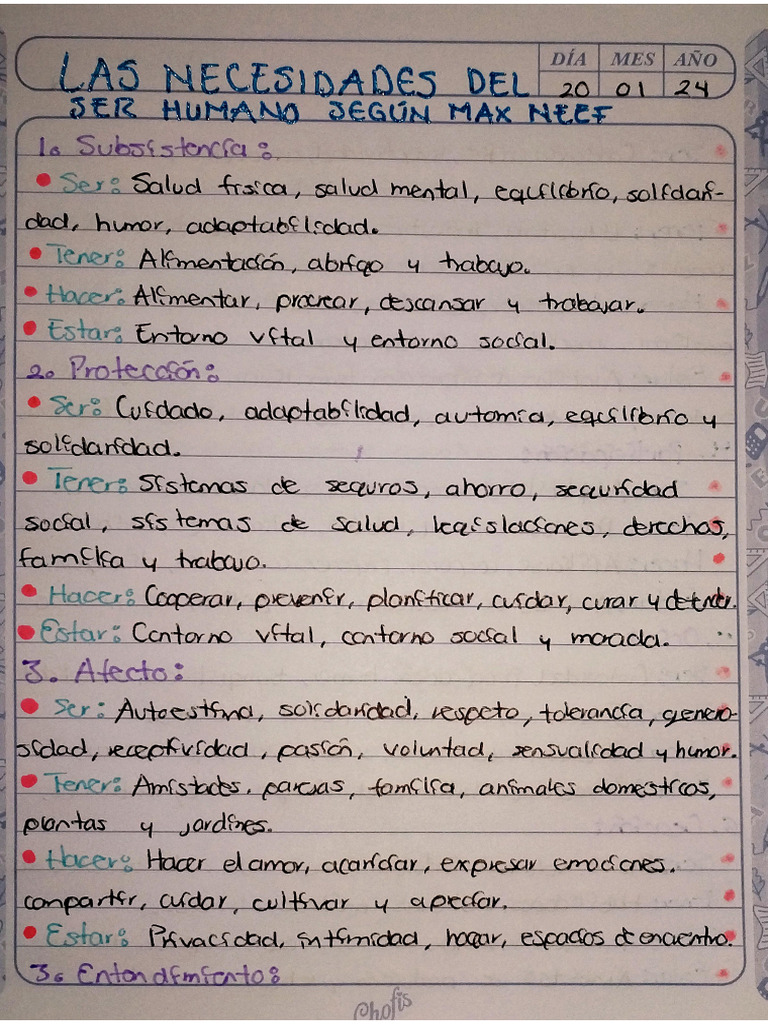 DÍA MES AÑO
LAS NECESIDADES DEL 20 01 24
SER HUMANO SEGÚN MAX NEEF
1. Subsistencia:
• Ser: Salud física, salud mental, equilibrio, solidari-
dad, humor, adaptabilidad.
• Tener: Alimentación, abrigo y trabajo.
• Hacer: Alimentar, procrear, descansar y trabajar.
• Estar: Entorno vital y entorno social.
2. Protección:
• Ser: Cuidado, adaptabilidad, automia, equilibrio y
solidaridad.
• Tener: Sistemas de seguros, ahorro, seguridad
social, sistemas de salud, legislaciones, derechos,
familia y trabajo.
• Hacer: Cooperar, prevenir, planificar, cuidar, curar y defender.
• Estar: Contorno vital, contorno social y morada.
3. Afecto:
• Ser: Autoestima, solidaridad, respeto, tolerancia, genero-
sidad, receptividad, pasión, voluntad, sensualidad y humor.
• Tener: Amistades, parejas, familia, animales domesticos,
plantas y jardines.
• Hacer: Hacer el amor, acariciar, expresar emociones,
compartir, cuidar, cultivar y apreciar.
• Estar: Privacidad, intimidad, hogar, espacios de encuentro.
3. Entendimiento:
Chofis